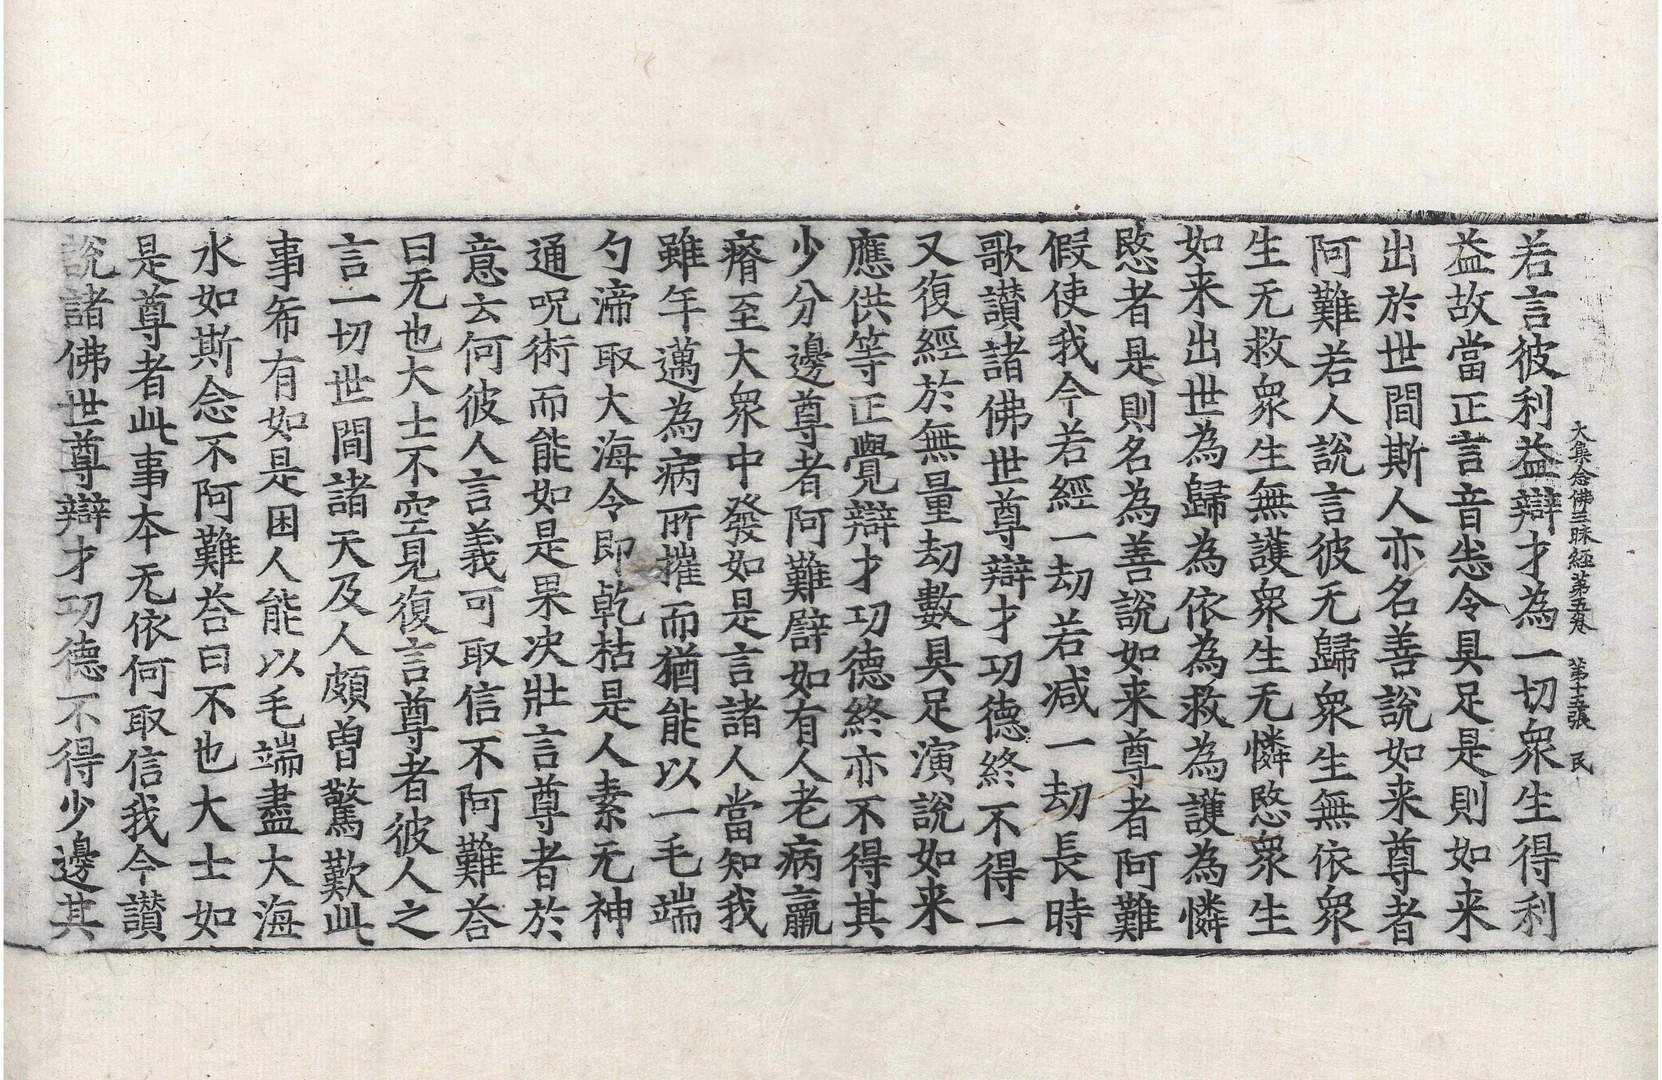 大集念佛三昧經第五卷 第十五張 民
若言彼利益辯才為一切衆生得利
益故當正言音悉令具足是則如来
出於世間斯人亦名善說如来尊者
阿難若人說言彼无歸衆生無依衆
生无救衆生無護衆生无憐愍衆生
如来出世為歸為依為救為護為憐
愍者是則名為善說如来尊者阿難
假使我今若經一劫若減一劫長時
歌讃諸佛世尊辯才功德終不得一
又復經於無量劫數具足演說如来
應供等正覺辯才功德終亦不得其
少分邊尊者阿難譬如有人老病羸
瘠至大衆中發如是言諸人當知我
雖年邁為病所摧而猶能以一毛端
勺渧取大海令即乾枯是人素无神
通呪術而能如是果决壯言尊者於
意云何彼人言義可取信不阿難荅
曰无也大士不空見復言尊者彼人之
言一切世間諸天及人頗曽驚歎此
事希有如是困人能以毛端盡大海
水如斯念不阿難荅曰不也大士如
是尊者此事本无依何取信我今讃
說諸佛世尊辯才功德不得少邊其